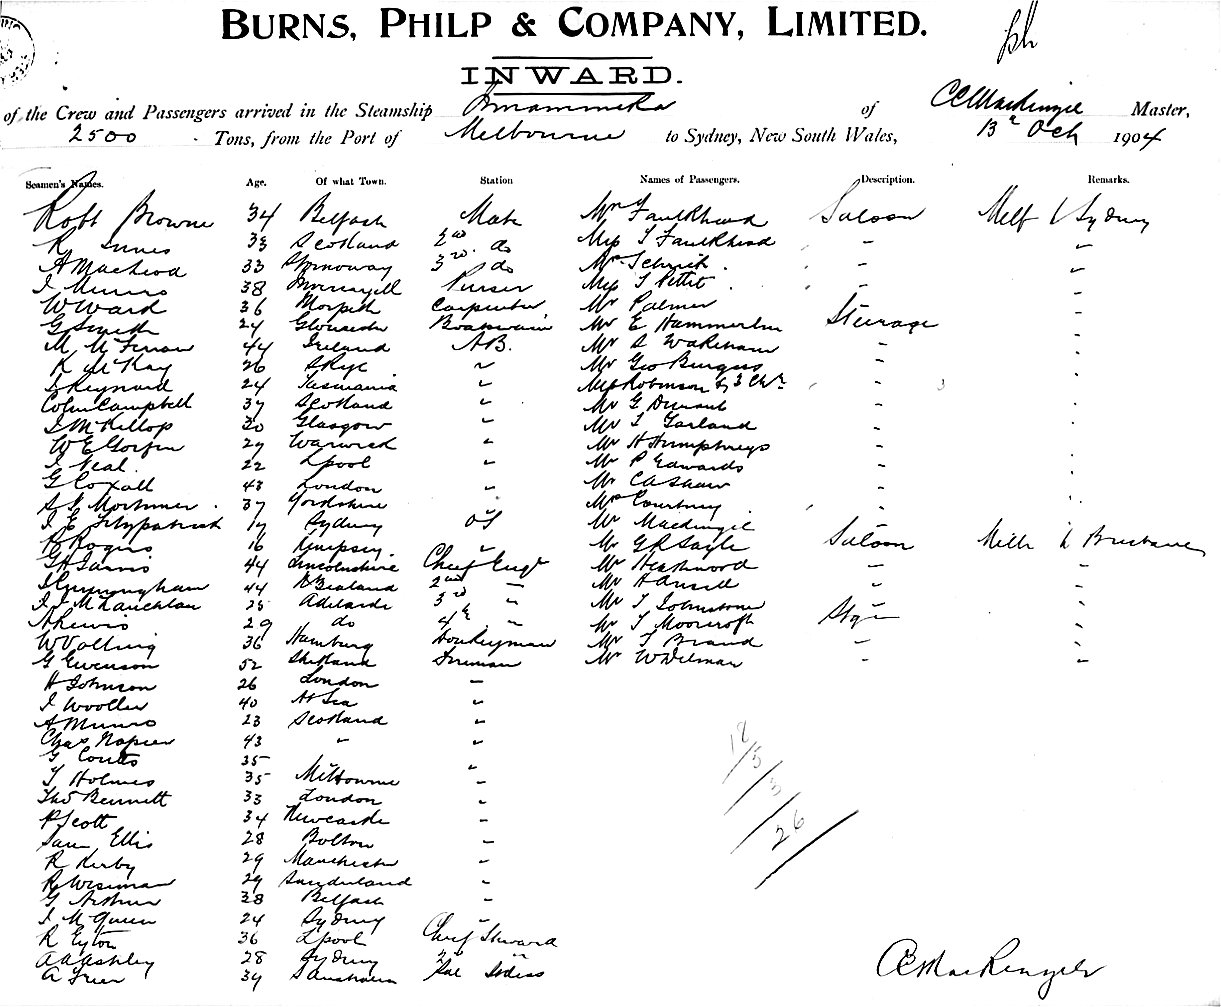 BURNS, PHILP & COMPANY, LIMITED.
INWARD.
of the Crew and Passengers arrived in the Steamship of CC Mackenzie Master,
2500 Tons, from the Port of Melbourne to Sydney, New South Wales, 13th Oct 1904
Seamen's Names. Age. Of what Town. Station Names of Passengers. Description. Remarks.
Robt Browne 34 Belfast Mate Faulkhead Saloon Melb to Sydney
R Innes 33 Scotland 2nd do Miss Faulkhead - "
A Macleod 33 Stornoway 3rd do Mr - "
J Munro 38 Purser Miss Pettit - "
W Ward 36 Morpeth Carpenter Mr Palmer - "
G Smith 24 Gloucester Boatswain Mr E Hammerlin Steerage "
M 44 Ireland A.B. Mr S Wakeham " "
R McKay 26 Skye " Mr Geo Burgess - "
Reynard 24 Tasmania " Robinson & 3 Chn - "
Colin Campbell 37 Scotland " Mr G Durant - "
J McKillop 30 Glasgow " Mr T Garland - "
W E 29 Warwick " Mr H Humphreys - "
J Neal 22 Lpool " Mr P Edwards - "
G Coxall 43 London " Mr CA Shaw - "
Mortimer 37 Yorkshire " Courtney - "
J E Fitzpatrick 19 Sydney OS Mr Mackenzie - "
R Rogers 16 Kempsey " Mr Sayle Saloon Melb to Brisbane
44 Lincolnshire Chief Engr Mr Heathwood - "
J Cunningham 44 N Zealand 2nd " Mr H Ansell - "
J J McLauchlan 25 Adelaide 3rd " Mr J Johnstone Stge "
A Lewis 29 do 4th " Mr J Moorcroft - "
W 36 Hamburg Donkeyman Mr J Brand - "
G Evenson 52 Shetland Fireman Mr W Wilman - "
H Johnson 26 London "
J Wooller 40 At Sea "
A Munro 23 Scotland "
Chas Napier 43 " "
G Coutts 35 "
T Holmes 35 Melbourne "
Thos Bennett 33 London "
P Scott 34 Newcastle "
Sam Ellis 28 Bolton "
R Kirby 29 Manchester "
R Wiseman 29 Sunderland "
G Arthur 38 Belfast "
J McQueen 24 Sydney "
R Eyton 36 Lpool Chief Steward
A A Ashley 28 Sydney 2nd "
A Greer 34
12/5/3/26
CC Mackenzie